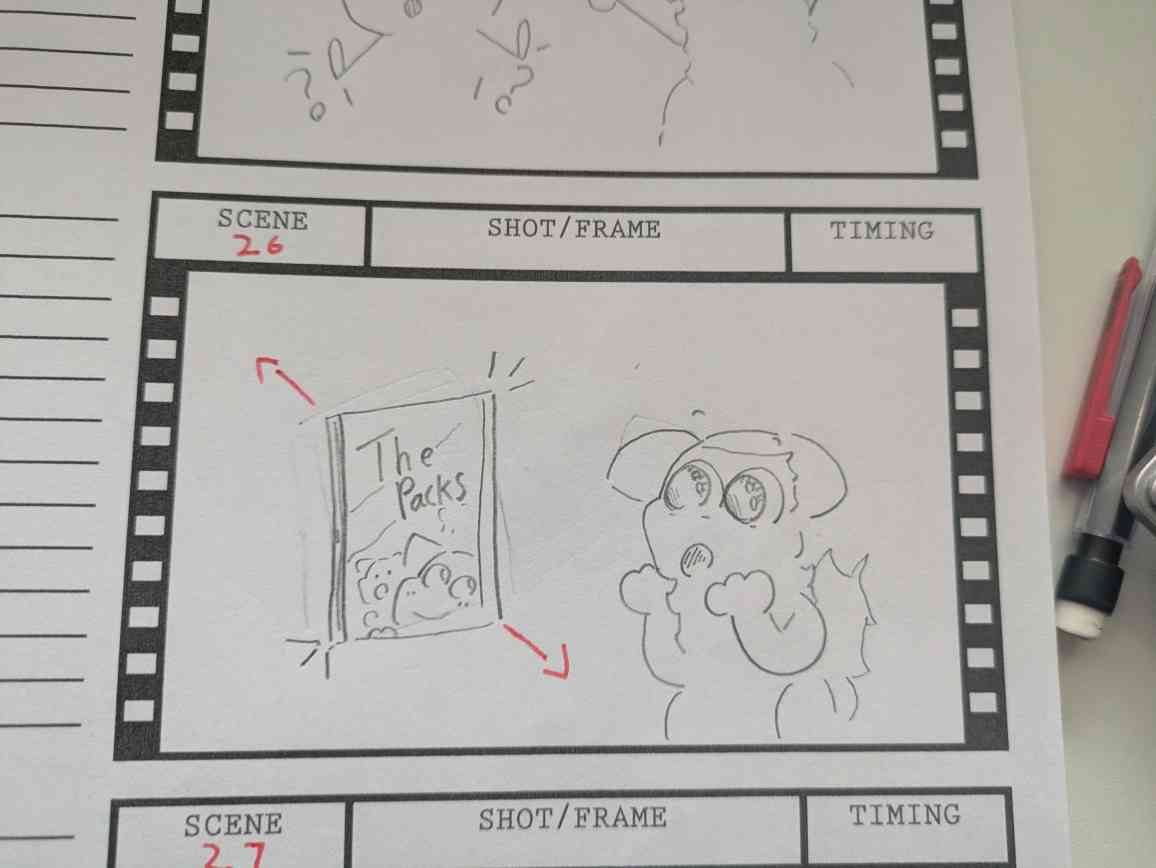 ?!
!?
SCENE SHOT/FRAME TIMING
26
The
Packs
SCENE SHOT/FRAME TIMING
27